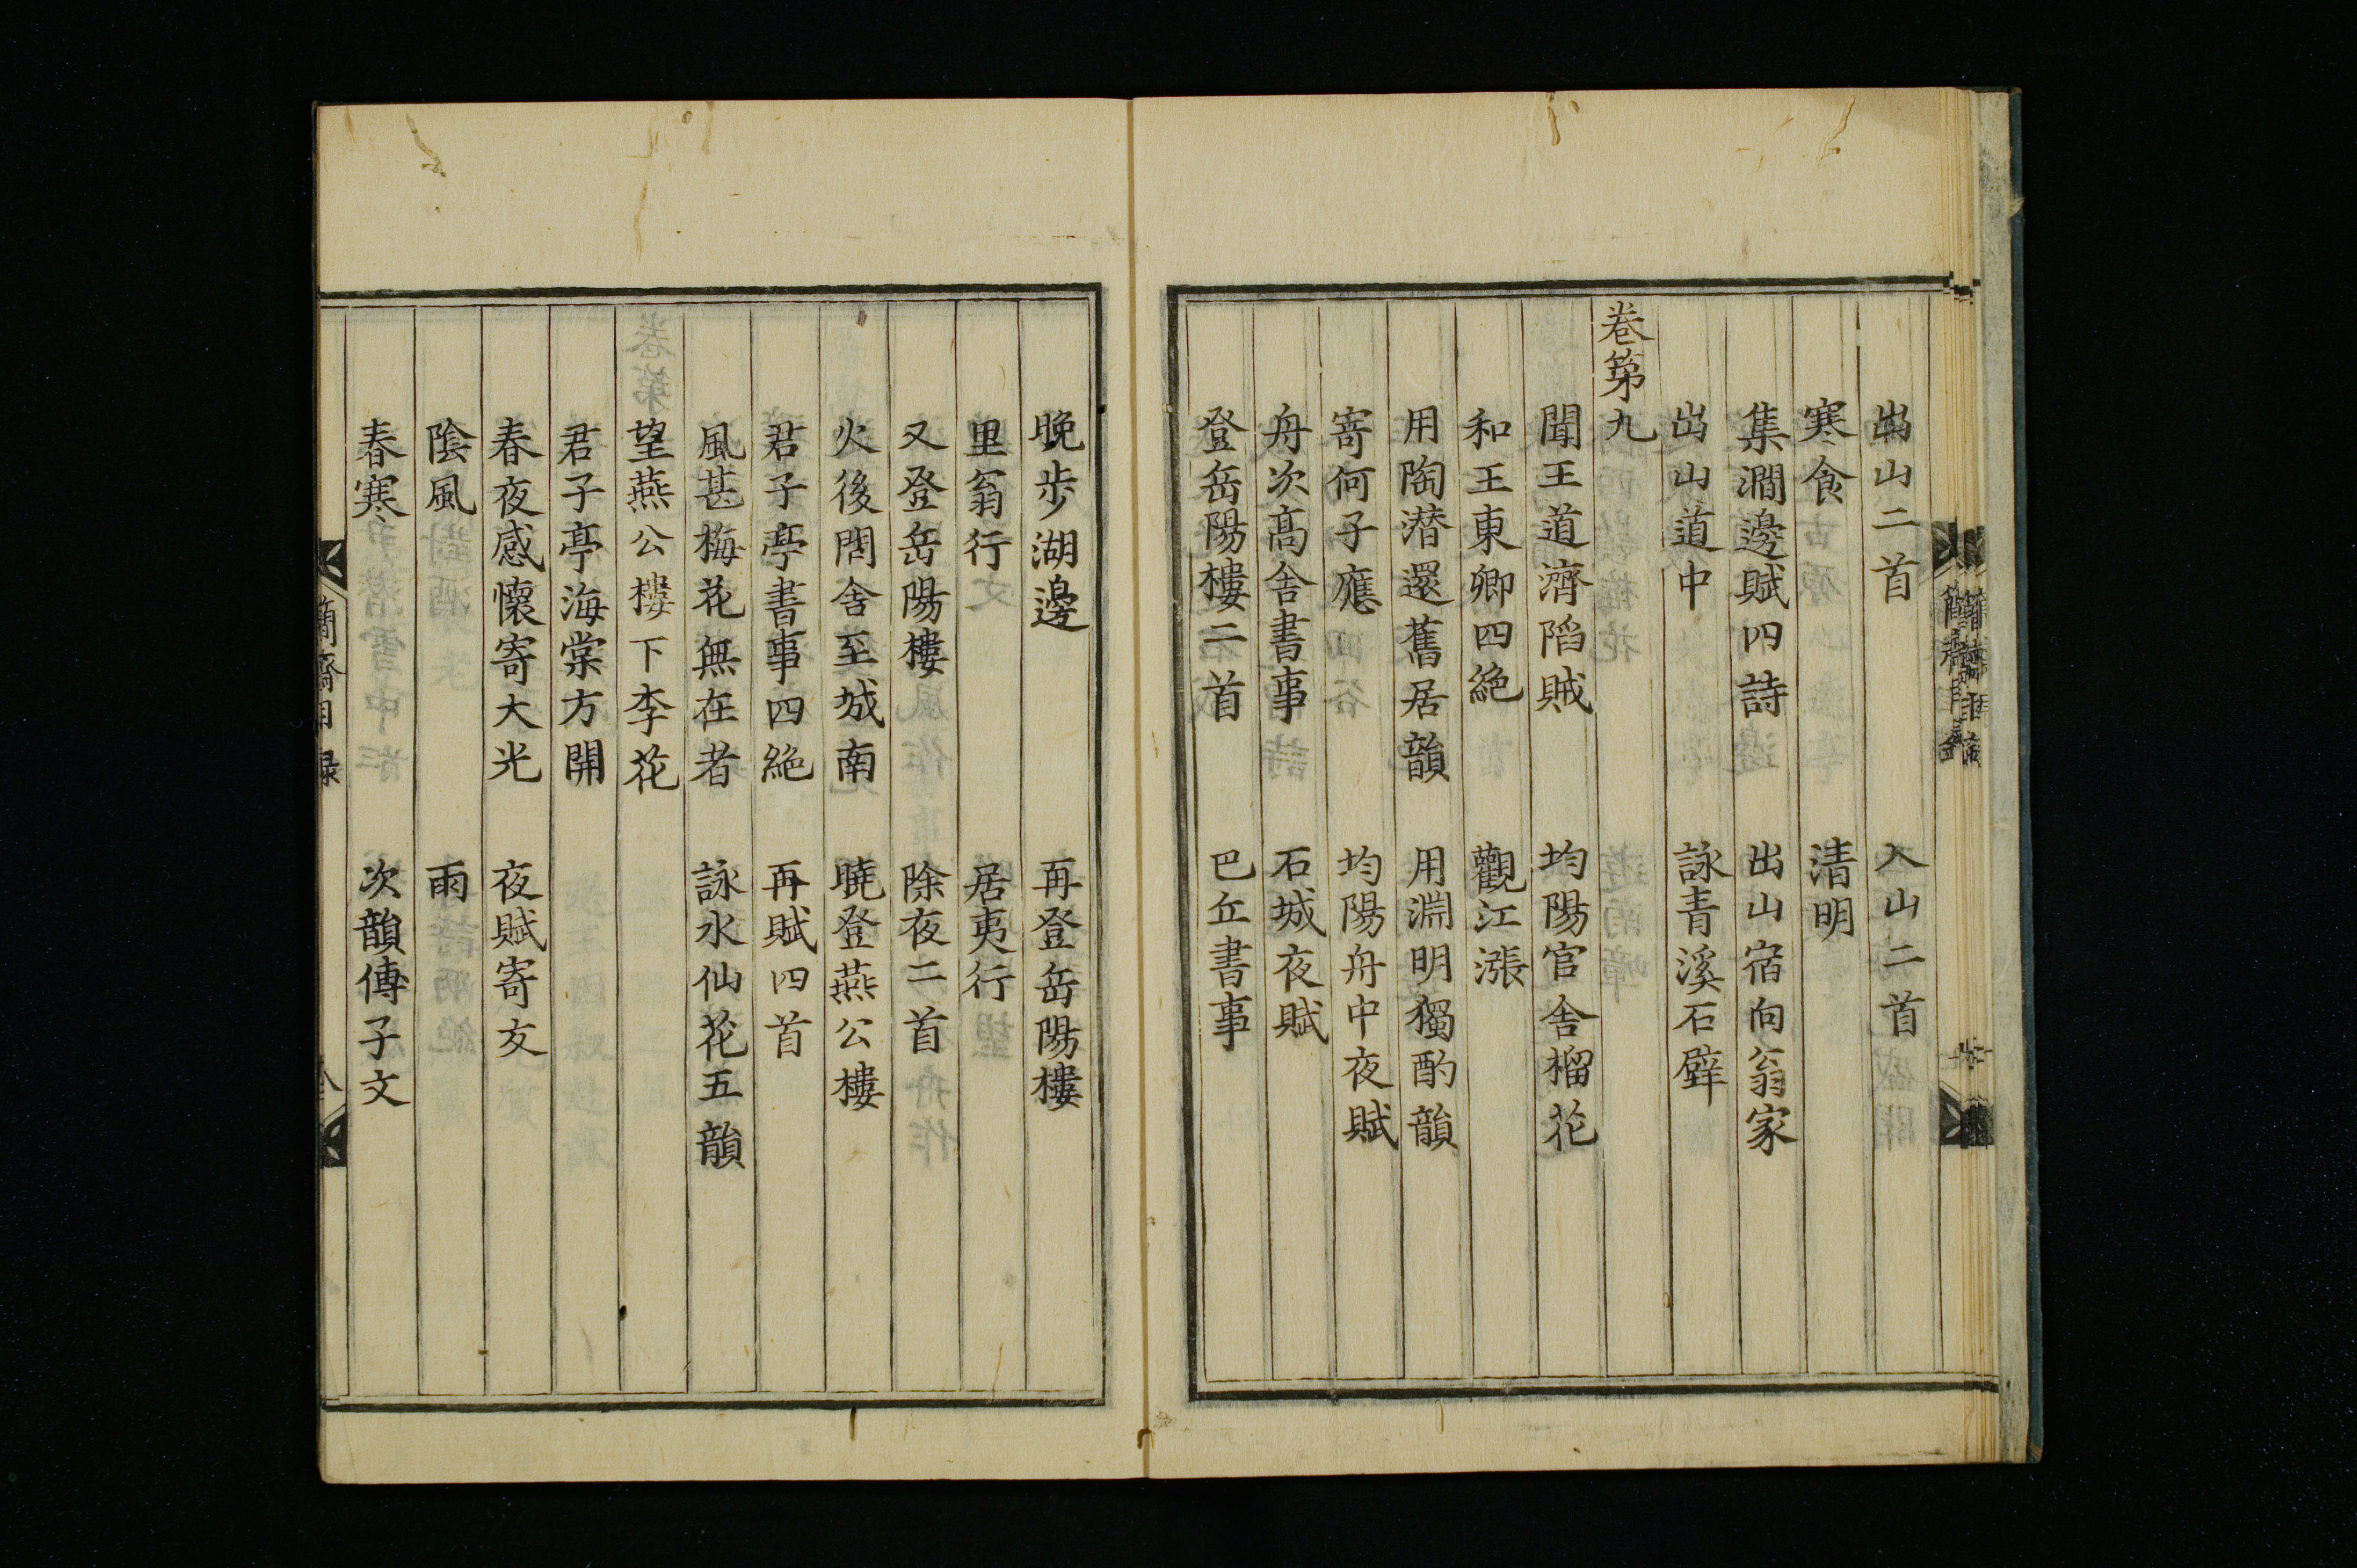 出山二首　入山二首
寒食　清明
集澗邊賦四詩　出山宿向翁家
出山道中　詠青溪石壁
卷第九
聞王道濟陷賊　均陽官舍榴花
和王東卿四絶　觀江漲
用陶潜還舊居韻　用淵明獨酌韻
寄何子應　均陽舟中夜賦
舟次髙舍書事　石城夜賦
登岳陽樓二首　巴丘書事
晚步湖邊　再登岳陽樓
里翁行　居夷行
又登岳陽樓　除夜二首
火後問舍至城南　曉登燕公樓
君子亭書事四絶　再賦四首
風甚梅花無在者　詠水仙花五韻
望燕公樓下李花
君子亭海棠方開
春夜感懷寄大光　夜賦寄友
陰風　雨
春寒　次韻傅子文
簡齋目録